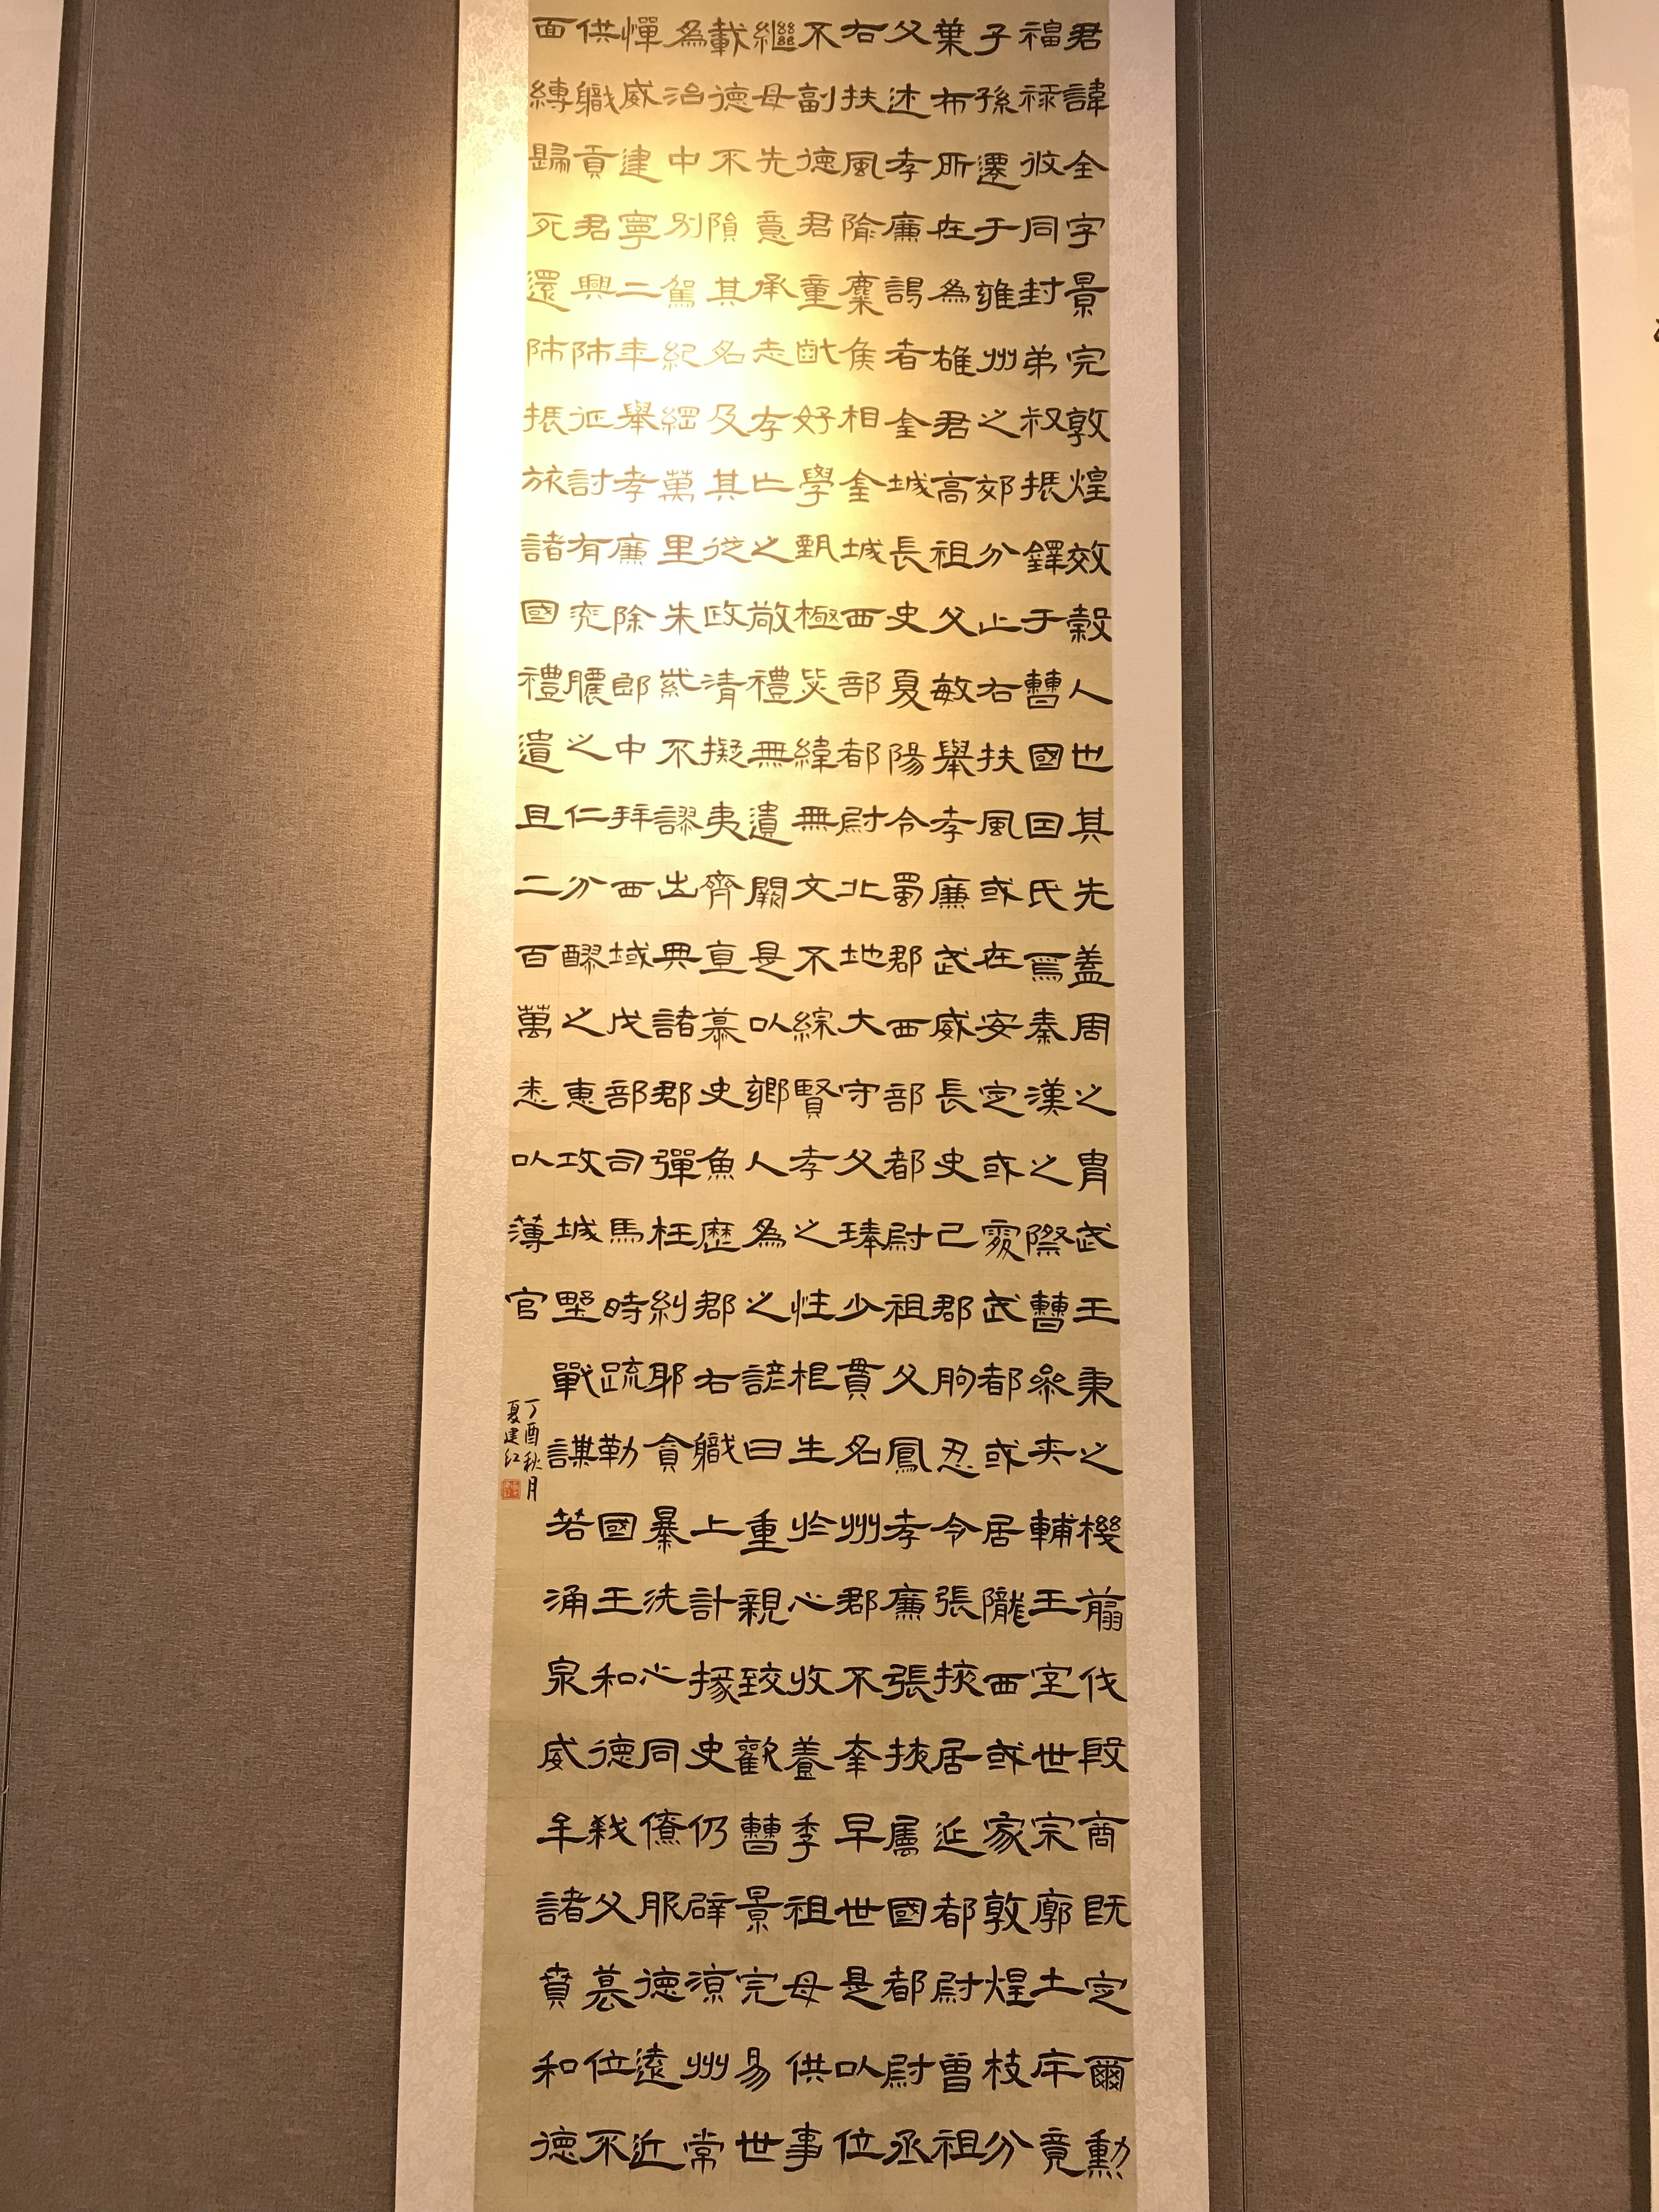 君諱全字景完敦煌效穀人也其先蓋周之胄武王秉之機翦伐殷商既定爾勳
福祿攸同封弟叔振鐸于曹國因氏焉秦漢之際曹參夾輔王室世宗廓土斥竟
子孫遷于雍州之郊分止右扶風或在安定或處武都或居隴西或家敦煌枝分
葉布所在為雄君高祖父敏舉孝廉武威長史巴郡朐忍令張掖居延都尉曾祖
父述孝廉謁者金城長史夏陽令蜀郡西部都尉祖父鳳孝廉張掖屬國都尉丞
右扶風隃麋侯相金城西部都尉北地大守父琫少貫名州郡不幸早世是以位
不副德君童齔好學甄極毖緯無文不綜賢孝之性根生於心收養季祖母供事
繼母先意承志存亡之敬禮無遺闕是以鄉人為之諺曰重親致歡曹景完易世
載德不隕其名及其從政清擬夷齊直慕史魚歷郡右職上計掾史仍辟涼州常
為治中別駕紀綱萬里朱紫不謬出典諸郡彈枉糾邪貪暴洗心同僚服德遠近
憚威建寧二年舉孝廉除郎中拜西域戊部司馬時疏勒國王和德弒父篡位不
供職貢君興師征討有兗膿之仁分醪之惠攻城野戰謀若涌泉威牟諸賁和德
面縛歸死還師振旅諸國禮遺且二百萬悉以薄官
丁酉秋月
夏建红